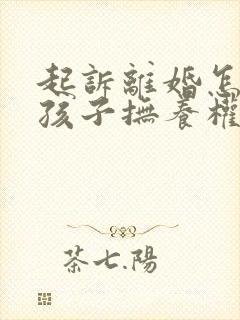 起訴離婚怎
孩子撫養權
茶七.陽